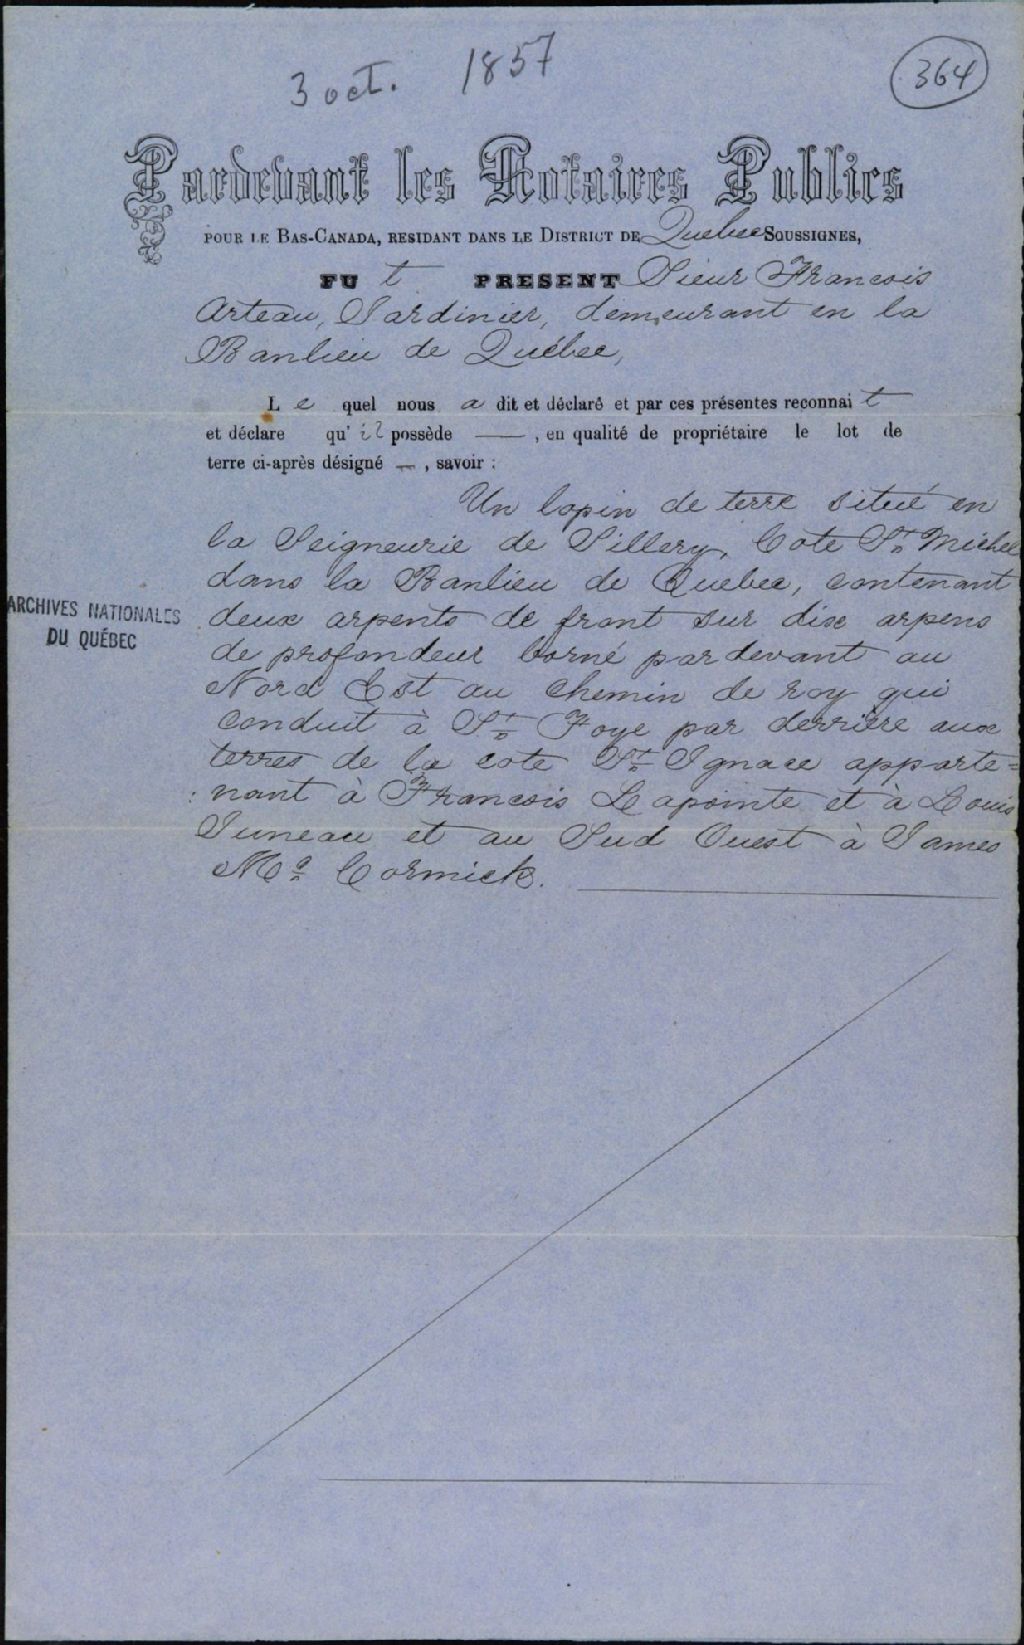 3 oct. 1857
364
Pardevant les Notaires Publics
POUR LE BAS-CANADA, RESIDANT DANS LE DISTRICT DE Quebec SOUSSIGNES,
FU t PRESENT Sieur Francois
Arteau, Jardinier, demeurant en la
Banlieu de Québec,
L e quel nous a dit et déclaré et par ces présentes reconnai t
et déclare qu' il possède —— , en qualité de propriétaire le lot de
terre ci-après désigné — , savoir :
Un lopin de terre situé en
la Seigneurie de Sillery, Cote St. Michel
dans la Banlieu de Quebec, contenant
ARCHIVES NATIONALES
DU QUÉBEC
deux arpents de front sur dix arpens
de profondeur borné par devant au
Nord Est au chemin de roy qui
conduit à St. Foye par derrière aux
terres de la cote St. Ignace apparte=
: nant à Francois Lapointe et à Louis
Juneau et au Sud Ouest à James
Mc. Cormick.